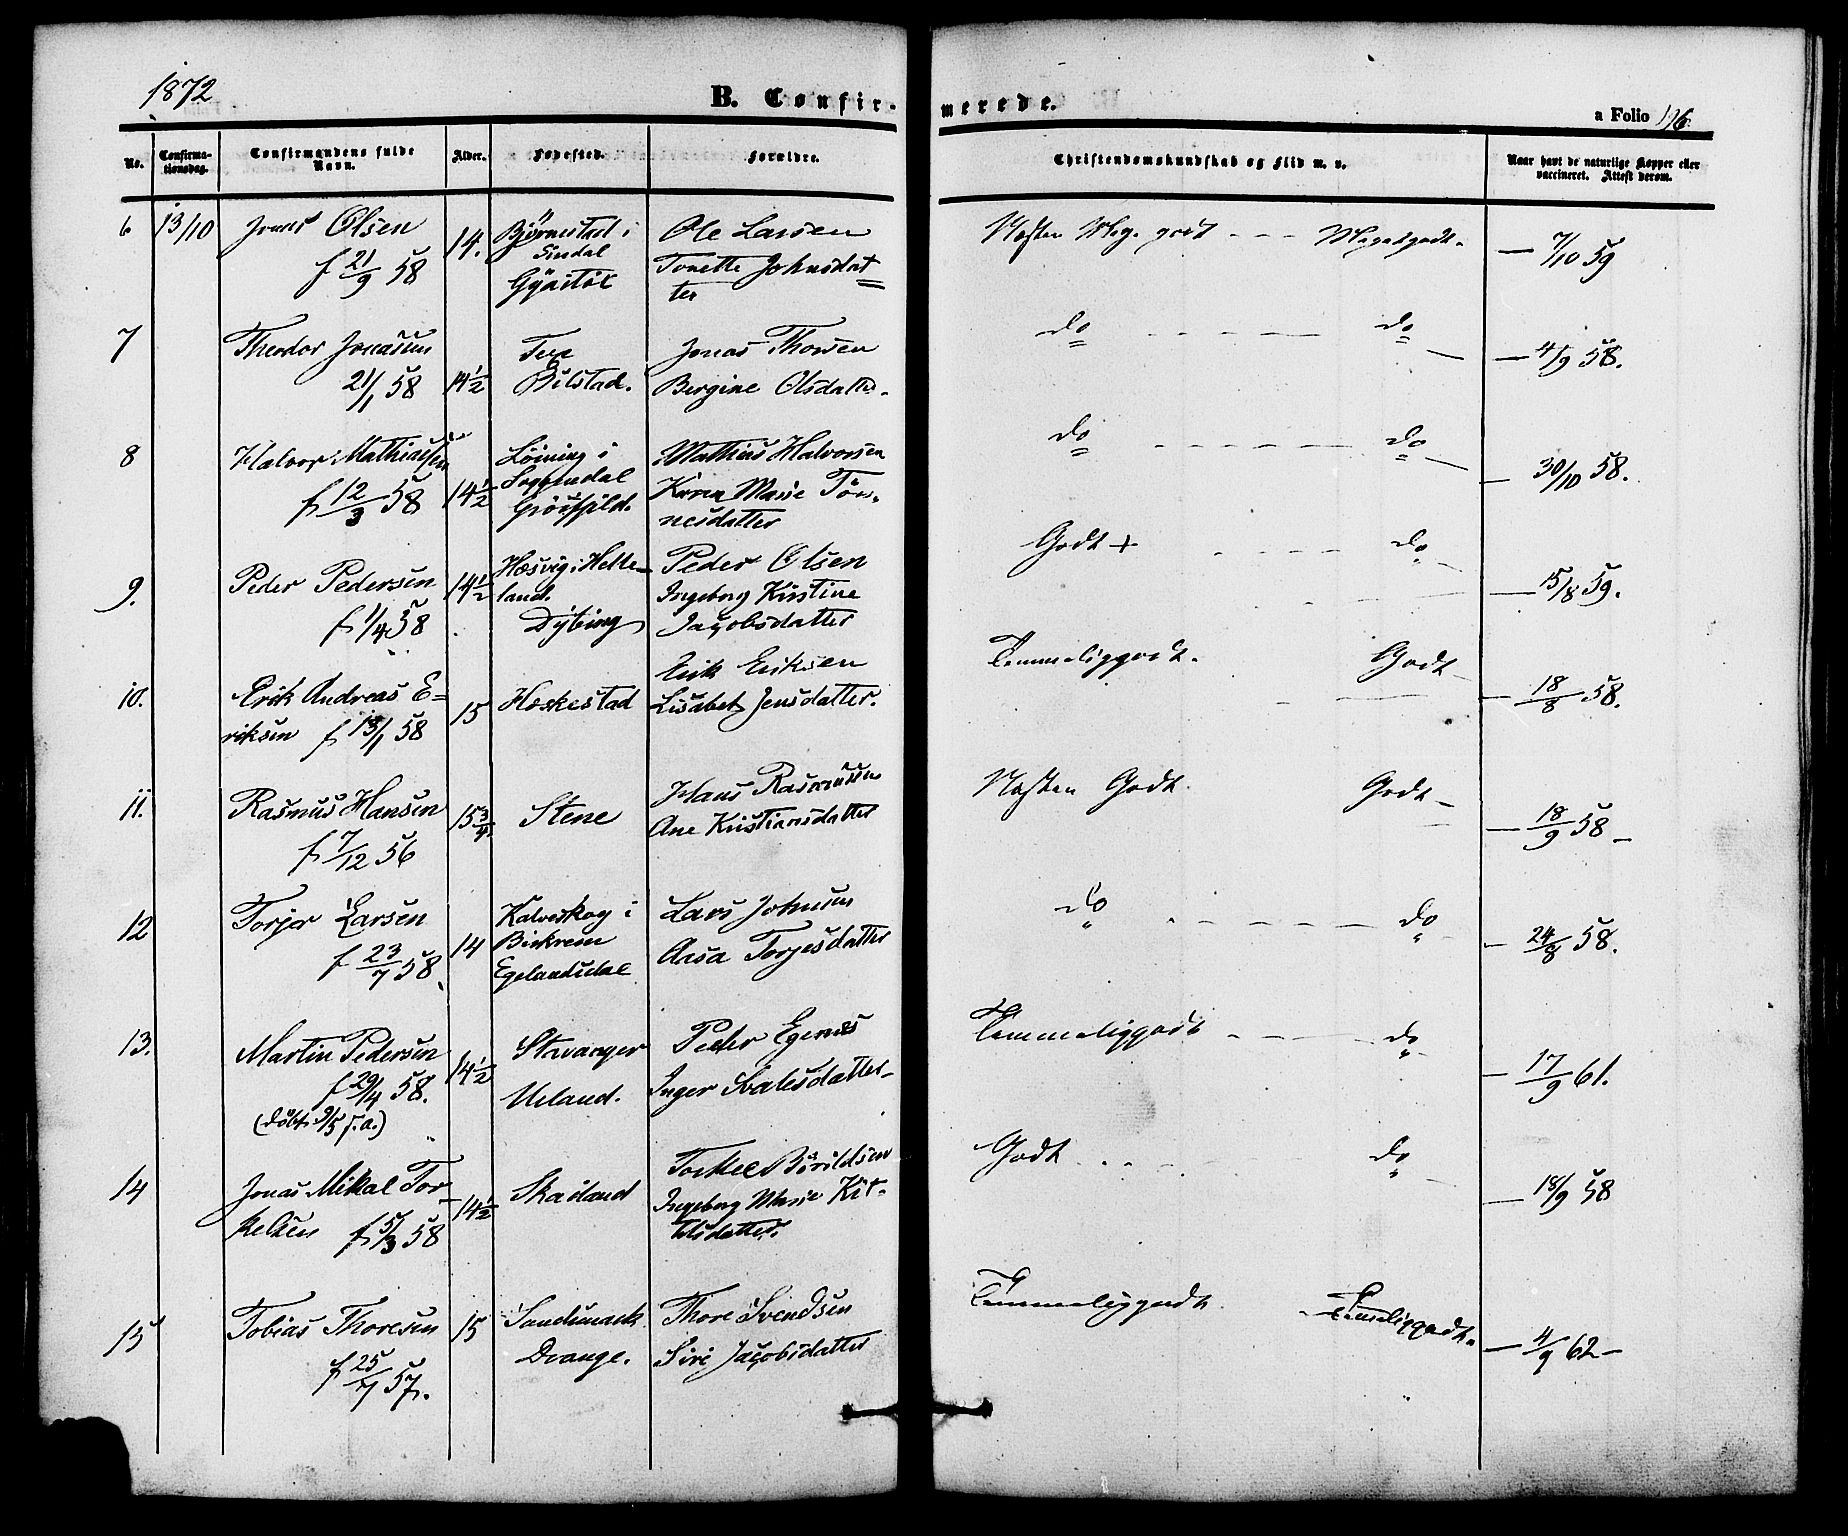 1872
B. Confir-
merede.
a Folio 196.
No.
Confirma-
tionsdag.
Confirmandens fulde
Navn.
Alder.
Fødested.
Forældre.
Christendomskundskab og Flid m. v.
Naar havt de naturlige Kopper eller
vaccineret. Attest derom.
6 13/10 Jonas Olsen
f 21/9 58
14.
Bjørnestad i
Sirdal
Gyåstøl
Ole Larsen
Tonette Johnsdat=
ter
Næsten Meg. godt - - - Megetgodt.
— 7/10 59
7 Theodor Jonasen
21/1 58
14½
Bilstad.
Jonas Thorsen
Bergine Olsdatter.
do - - - - do
— 4/9 58.
8 Halvor Mathiassen
f 12/3 58
14½
Løining i
Soggendal
Mathias Halvorsen
Karen Marie Tøn-
nesdatter
do - - - - do
— 30/10 58.
9. Peder Pedersen
f 1/4 58
14½
Hæsvig i Helle-
land.
Dybing
Peder Olsen
Ingeborg Kirstine
Jacobsdatter
Godt + - - - do
— 15/8 59.
10. Erik Andreas E=
riksen f 13/1 58
15
Heskestad
Erik Eriksen
Lisabet Jensdatter.
Temmeliggodt. Godt
— 18/8 58.
11. Rasmus Hansen
f 7/12 56
15¾
Stene
Hans Rasmussen
Ane Kristiansdatter
Næsten Godt. Godt —
— 18/9 58 —
12 Torjer Larsen
f 23/7 58.
14
Kalveskog i
Birkrem
Egelandsdal
Lars Johnsen
Aasa Torjesdatter
do - - - - do
— 24/8 58.
13. Martin Pedersen
f 29/4 58.
(døbt 9/5 s.a.)
14½
Stavanger
Ueland.
Peder Egenes
Inger Svalesdatter
Temmeliggodt - - - do
— 17/9 61.
14 Jonas Mikal Tor-
kelsen f 5/3 58
14½
Skadland
Torkel Børildsen
Ingeborg Marie Kit-
telsdatter.
Godt - - - do
— 18/9 58
15 Tobias Thoresen
f 25/7 57.
15
Sandsmark
Drange.
Thore Svendsen
Siri Jacobsdatter
Temmeliggodt. Temeliggodt.
— 4/9 62 —